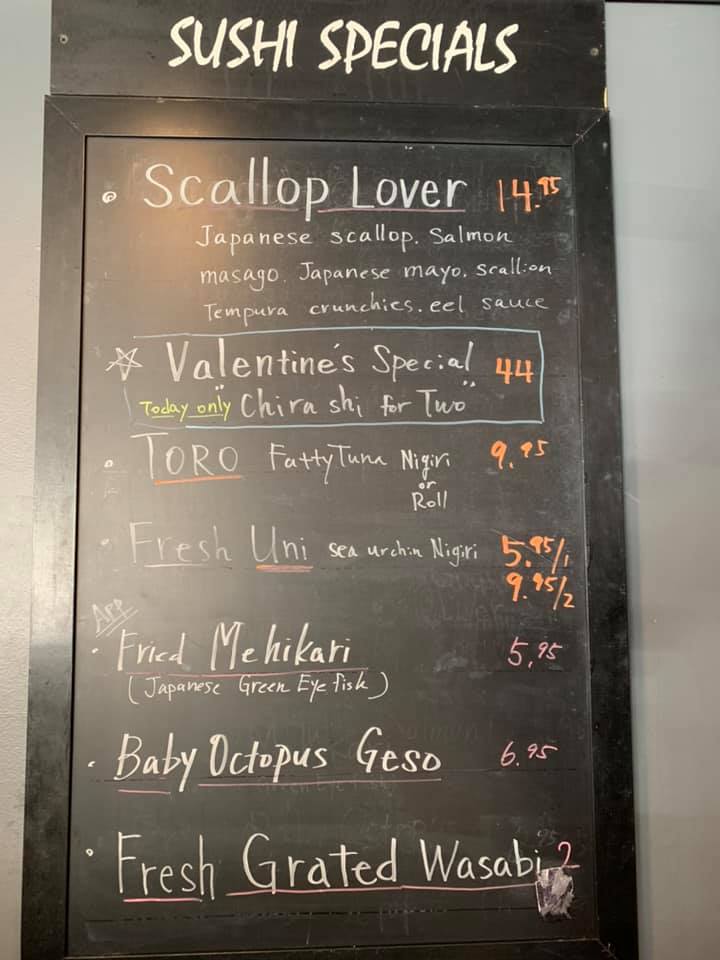 SUSHI SPECIALS
Scallop Lover 14.95
Japanese scallop. Salmon
masago. Japanese mayo. scallion
Tempura crunchies. eel sauce
Valentine's Special 44
Today only "Chirashi for Two"
TORO Fatty Tuna Nigiri 9.95
or
Roll
Fresh Uni sea urchin Nigiri 5.95/1
9.95/2
APP
Fried Mehikari 5.95
(Japanese Green Eye fish)
Baby Octopus Geso 6.95
Fresh Grated Wasabi 2